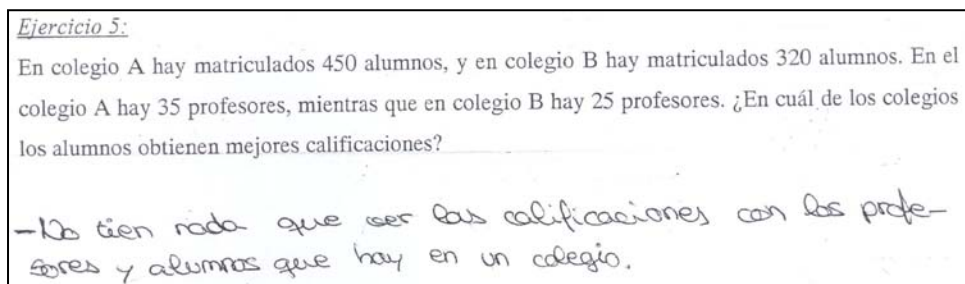 Ejercicio 5:
En colegio A hay matriculados 450 alumnos, y en colegio B hay matriculados 320 alumnos. En el
colegio A hay 35 profesores, mientras que en colegio B hay 25 profesores. ¿En cuál de los colegios
los alumnos obtienen mejores calificaciones?
-No tien nada que ver las calificaciones con los profe-
sores y alumnos que hay en un colegio.